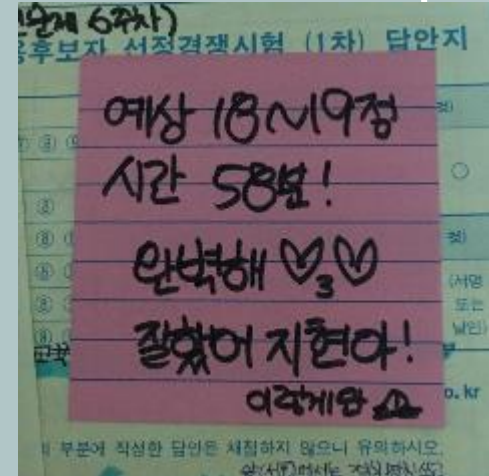 6주차)
후보자 선정경쟁시험 (1차) 답안지
예상 18~19점
시간 58분!
완벽해 ♡3♡
잘했어 지현아!
이렇게만
(서명
또는
날인)
교육
o.kr
부분에 작성한 답안은 채점하지 않으니 유의하시오.